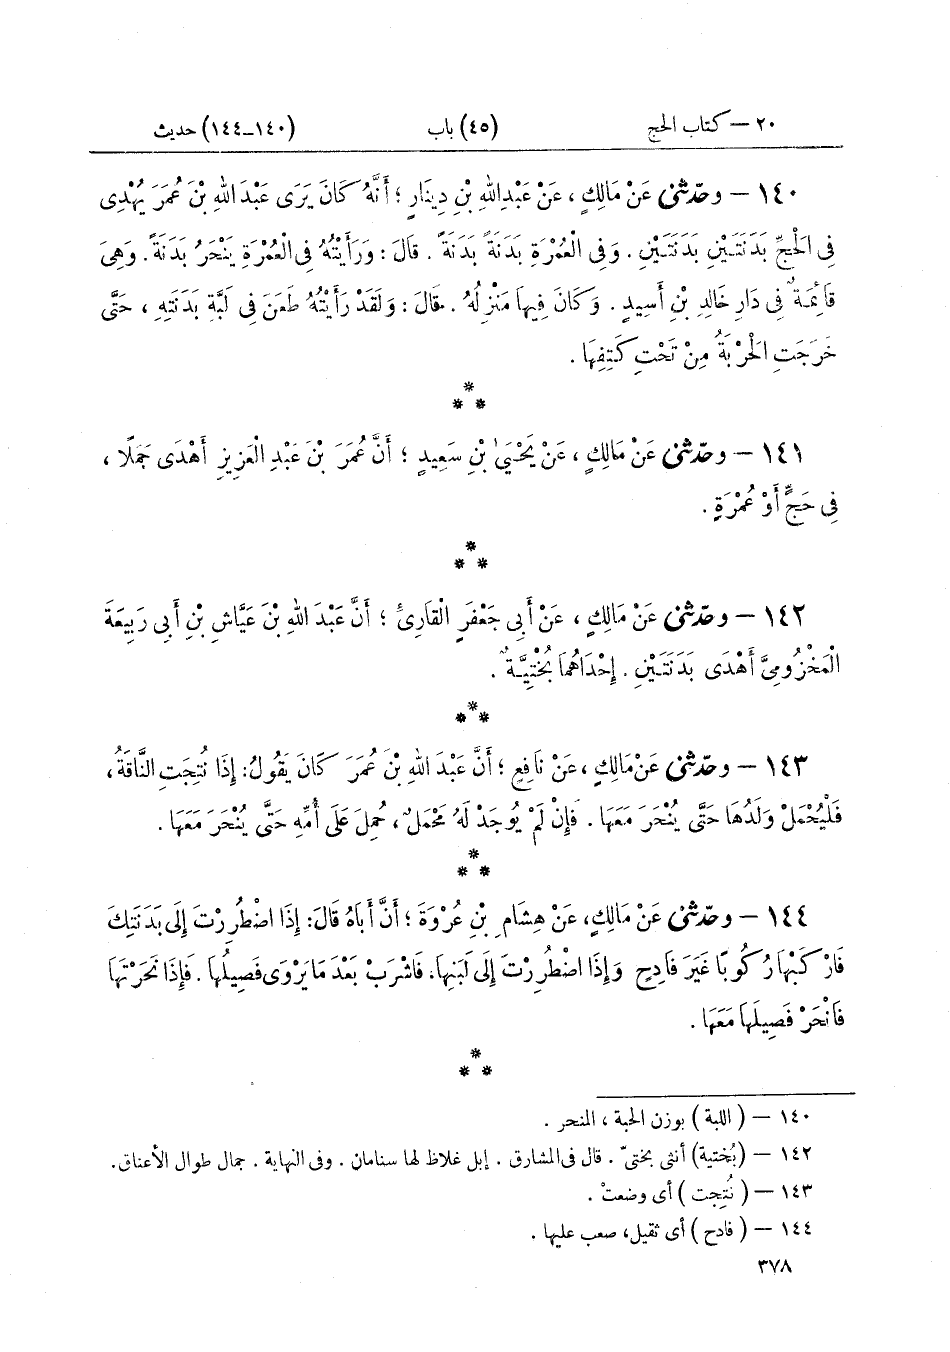 ٢٠ — كتاب الحج (٤٥) باب (١٤٠-١٤٤) حديث
١٤٠ — وحدّثنى عَنْ مَالِكٍ ، عَنْ عَبْدِ اللهِ بْنِ دِينَارٍ ؛ أَنَّهُ كَانَ يَرَى عَبْدَ اللهِ بْنَ عُمَرَ يُهْدِى
فِى الْحَجِّ بَدَنَتَيْنِ بَدَنَتَيْنِ . وَفِى الْعُمْرَةِ بَدَنَةً بَدَنَةً . قَالَ : وَرَأَيْتُهُ فِى الْعُمْرَةِ يَنْحَرُ بَدَنَةً . وَهِىَ
قَائِمَةٌ فِى دَارِ خَالِدِ بْنِ أَسِيدٍ . وَكَانَ فِيهَا مَنْزِلُهُ . قَالَ : وَلَقَدْ رَأَيْتُهُ طَعَنَ فِى لَبَّةِ بَدَنَتِهِ ، حَتَّى
خَرَجَتِ الْحَرْبَةُ مِنْ تَحْتِ كَتِفِهَا .
*
* *
١٤١ — وحدّثنى عَنْ مَالِكٍ ، عَنْ يَحْيَىٰ بْنِ سَعِيدٍ ؛ أَنَّ عُمَرَ بْنَ عَبْدِ الْعَزِيزِ أَهْدَى جَمَلًا ،
فِى حَجٍّ أَوْ عُمْرَةٍ .
*
* *
١٤٢ — وحدّثنى عَنْ مَالِكٍ ، عَنْ أَبِى جَعْفَرٍ الْقَارِئِ ؛ أَنَّ عَبْدَ اللهِ بْنَ عَيَّاشِ بْنِ أَبِى رَبِيعَةَ
الْمَخْزُومِىَّ أَهْدَى بَدَنَتَيْنِ . إِحْدَاهُمَا بُخْتِيَّةٌ .
*
* *
١٤٣ — وحدّثنى عَنْ مَالِكٍ ، عَنْ نَافِعٍ ؛ أَنَّ عَبْدَ اللهِ بْنَ عُمَرَ كَانَ يَقُولُ : إِذَا نُتِجَتِ النَّاقَةُ ،
فَلْيُحْمَلْ وَلَدُهَا حَتَّى يُنْحَرَ مَعَهَا . فَإِنْ لَمْ يُوجَدْ لَهُ مَحْمَلٌ ، حُمِلَ عَلَى أُمِّهِ حَتَّى يُنْحَرَ مَعَهَا .
*
* *
١٤٤ — وحدّثنى عَنْ مَالِكٍ ، عَنْ هِشَامِ بْنِ عُرْوَةَ ؛ أَنَّ أَبَاهُ قَالَ : إِذَا اضْطُرِرْتَ إِلَى بَدَنَتِكَ
فَارْكَبْهَا رُكُوبًا غَيْرَ فَادِحٍ وَإِذَا اضْطُرِرْتَ إِلَى لَبَنِهَا ، فَاشْرَبْ بَعْدَ مَا يَرْوَى فَصِيلُهَا . فَإِذَا نَحَرْتَهَا
فَانْحَرْ فَصِيلَهَا مَعَهَا .
*
* *
١٤٠ — ( اللبة ) بوزن الحبة ، المنحر .
١٤٢ — (بُختية) أنثى بختىّ . قال فى المشارق . إبل غلاظ لها سنامان . وفى النهاية . جمال طوال الأعناق .
١٤٣ — ( نُتِجت ) أى وضعتْ .
١٤٤ — ( فادح ) أى ثقيل ، صعب عليها .
٣٧٨